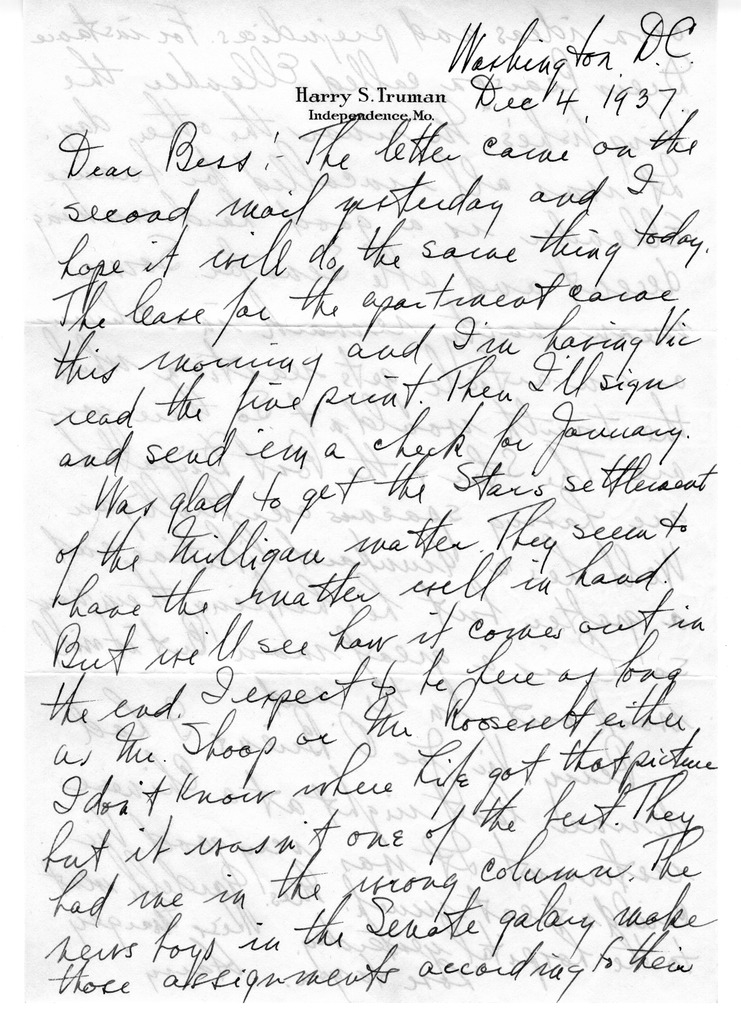 Washington, D.C.
Harry S. Truman
Independence, Mo.
Dec 4, 1937.
Dear Bess:- The letter came on the
second mail yesterday and I
hope it will do the same thing today.
The lease for the apartment came
this morning and I'm having Vic
read the fine print. Then I'll sign
and send 'em a check for January.
Was glad to get the Stars settlement
of the Milligan matter. They seem to
have the matter well in hand.
But we'll see how it comes out in
the end. I expect to be here as long
as Mr. Shoop or Mr Roosevelt either
I don't know where Life got that picture
but it wasn't one of the best. They
had me in the wrong column. The
news boys in the Senate galary make
those assignments according to their